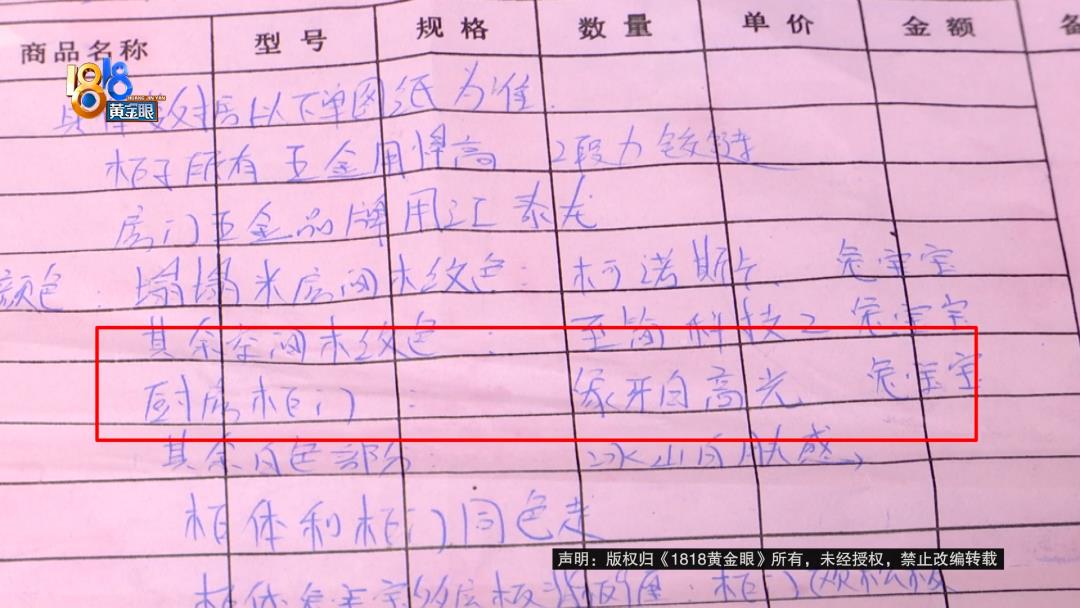 商品名称 型号 规格 数量 单价 金额 备
1818 黄金眼
HUANG JIN YAN
具体数据以下单图纸为准
柜子所有五金用悍高 2段力铰链
房门五金品牌用汇泰龙
颜色：榻榻米房间木纹色：柯诺斯 兔宝宝
其余空间木纹色：至简科技2 兔宝宝
厨房柜门：象牙白高光 兔宝宝
其余白色部分 冰山白肤感
柜体和柜门同色走
声明：版权归《1818黄金眼》所有，未经授权，禁止改编转载
柜体兔宝宝多层板 柜门